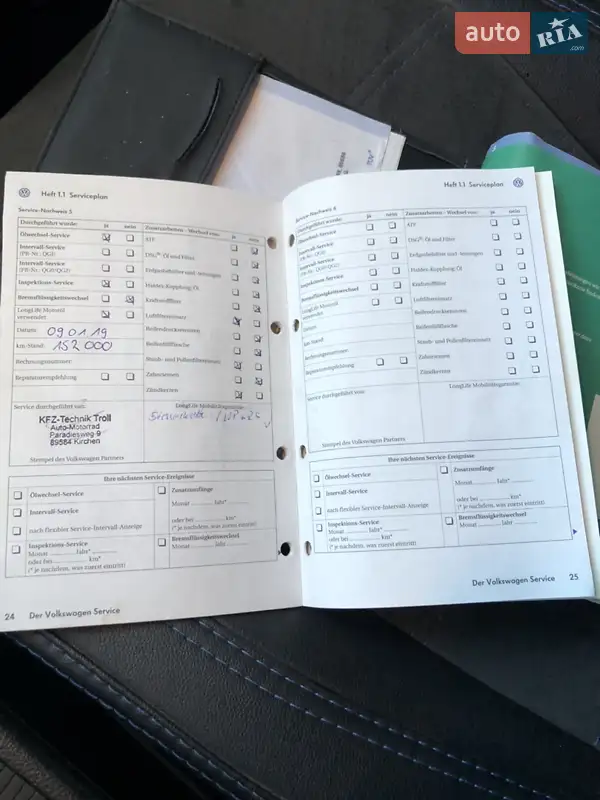 auto RIA .com
Heft 1.1 Serviceplan
Service-Nachweis 5
Durchgeführt wurde: ja nein
Zusatzarbeiten - Wechsel von: ja nein
Ölwechsel-Service
ATF
Intervall-Service
(PR-Nr.: QG1)
DSG®: Öl und Filter
Intervall-Service
(PR-Nr.: QG0/QG2)
Erdgasbehälter und -leitungen
Inspektions-Service
Haldex-Kupplung: Öl
Bremsflüssigkeitswechsel
Kraftstofffilter
LongLife Motoröl
verwendet
Luftfiltereinsatz
Datum: 09 01 19
Reifendruckssensoren
km-Stand: 152 000
Reifenfüllflasche
Rechnungsnummer:
Staub- und Pollenfiltereinsatz
Reparaturempfehlung
Zahnriemen
Zündkerzen
Service durchgeführt von:
KFZ-Technik Troll
Auto-Motorrad
Paradiesweg 9
89584 Kirchen
Stempel des Volkswagen Partners
Ihre nächsten Service-Ereignisse
Ölwechsel-Service
Intervall-Service
nach flexibler Service-Intervall-Anzeige
Inspektions-Service
Monat Jahr*
oder bei km*
(* je nachdem, was zuerst eintritt)
Zusatzumfänge
Monat Jahr*
oder bei km*
(* je nachdem, was zuerst eintritt)
Bremsflüssigkeitswechsel
Monat Jahr
24 Der Volkswagen Service
Heft 1.1 Serviceplan
Service-Nachweis 6
Durchgeführt wurde: ja nein
Zusatzarbeiten - Wechsel von: ja nein
Ölwechsel-Service
ATF
Intervall-Service
(PR-Nr.: QG1)
DSG®: Öl und Filter
Intervall-Service
(PR-Nr.: QG0/QG2)
Erdgasbehälter und -leitungen
Inspektions-Service
Haldex-Kupplung: Öl
Bremsflüssigkeitswechsel
Kraftstofffilter
LongLife Motoröl
verwendet
Luftfiltereinsatz
Datum:
Reifendruckssensoren
km-Stand:
Reifenfüllflasche
Rechnungsnummer:
Staub- und Pollenfiltereinsatz
Reparaturempfehlung
Zahnriemen
Zündkerzen
Service durchgeführt von:
LongLife Mobilitätsgarantie
Stempel des Volkswagen Partners
Ihre nächsten Service-Ereignisse
Ölwechsel-Service
Intervall-Service
nach flexibler Service-Intervall-Anzeige
Inspektions-Service
Monat Jahr*
oder bei km*
(* je nachdem, was zuerst eintritt)
Zusatzumfänge
Monat Jahr*
oder bei km*
(* je nachdem, was zuerst eintritt)
Bremsflüssigkeitswechsel
Monat Jahr
Der Volkswagen Service 25